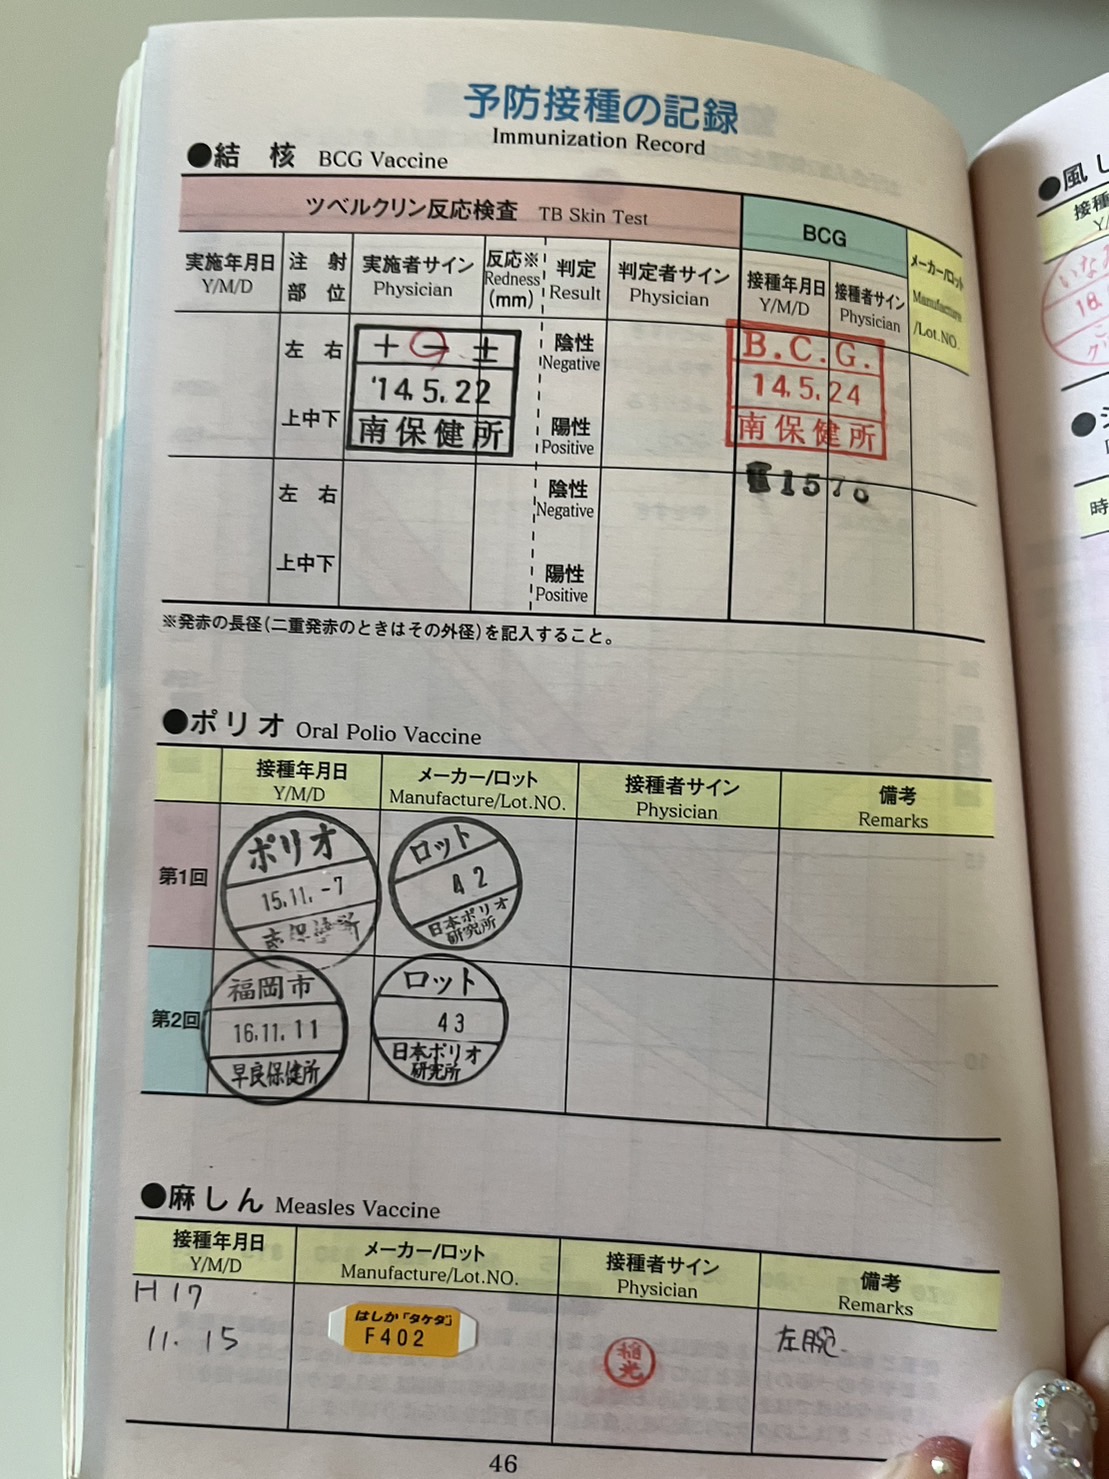 予防接種の記録
Immunization Record
●結 核 BCG Vaccine
ツベルクリン反応検査 TB Skin Test
BCG
メーカー/ロット
Manufacture
/Lot.NO.
実施年月日
Y/M/D
注 射
部 位
実施者サイン
Physician
反応※
Redness
(mm)
判定
Result
判定者サイン
Physician
接種年月日
Y/M/D
接種者サイン
Physician
左 右
上中下
+ - ±
'14.5.22
南保健所
陰性
Negative
陽性
Positive
B.C.G.
14.5.24
南保健所
1576
左 右
上中下
陰性
Negative
陽性
Positive
※発赤の長径(二重発赤のときはその外径)を記入すること。
●ポリオ Oral Polio Vaccine
接種年月日
Y/M/D
メーカー/ロット
Manufacture/Lot.NO.
接種者サイン
Physician
備考
Remarks
第1回
ポリオ
15.11.-7
南保健所
ロット
42
日本ポリオ
研究所
第2回
福岡市
16.11.11
早良保健所
ロット
43
日本ポリオ
研究所
●麻しん Measles Vaccine
接種年月日
Y/M/D
メーカー/ロット
Manufacture/Lot.NO.
接種者サイン
Physician
備考
Remarks
H17
11. 15
はしか「タケダ」
F402
稲光
左腕
46
●風し
接種
Y/
18.
時